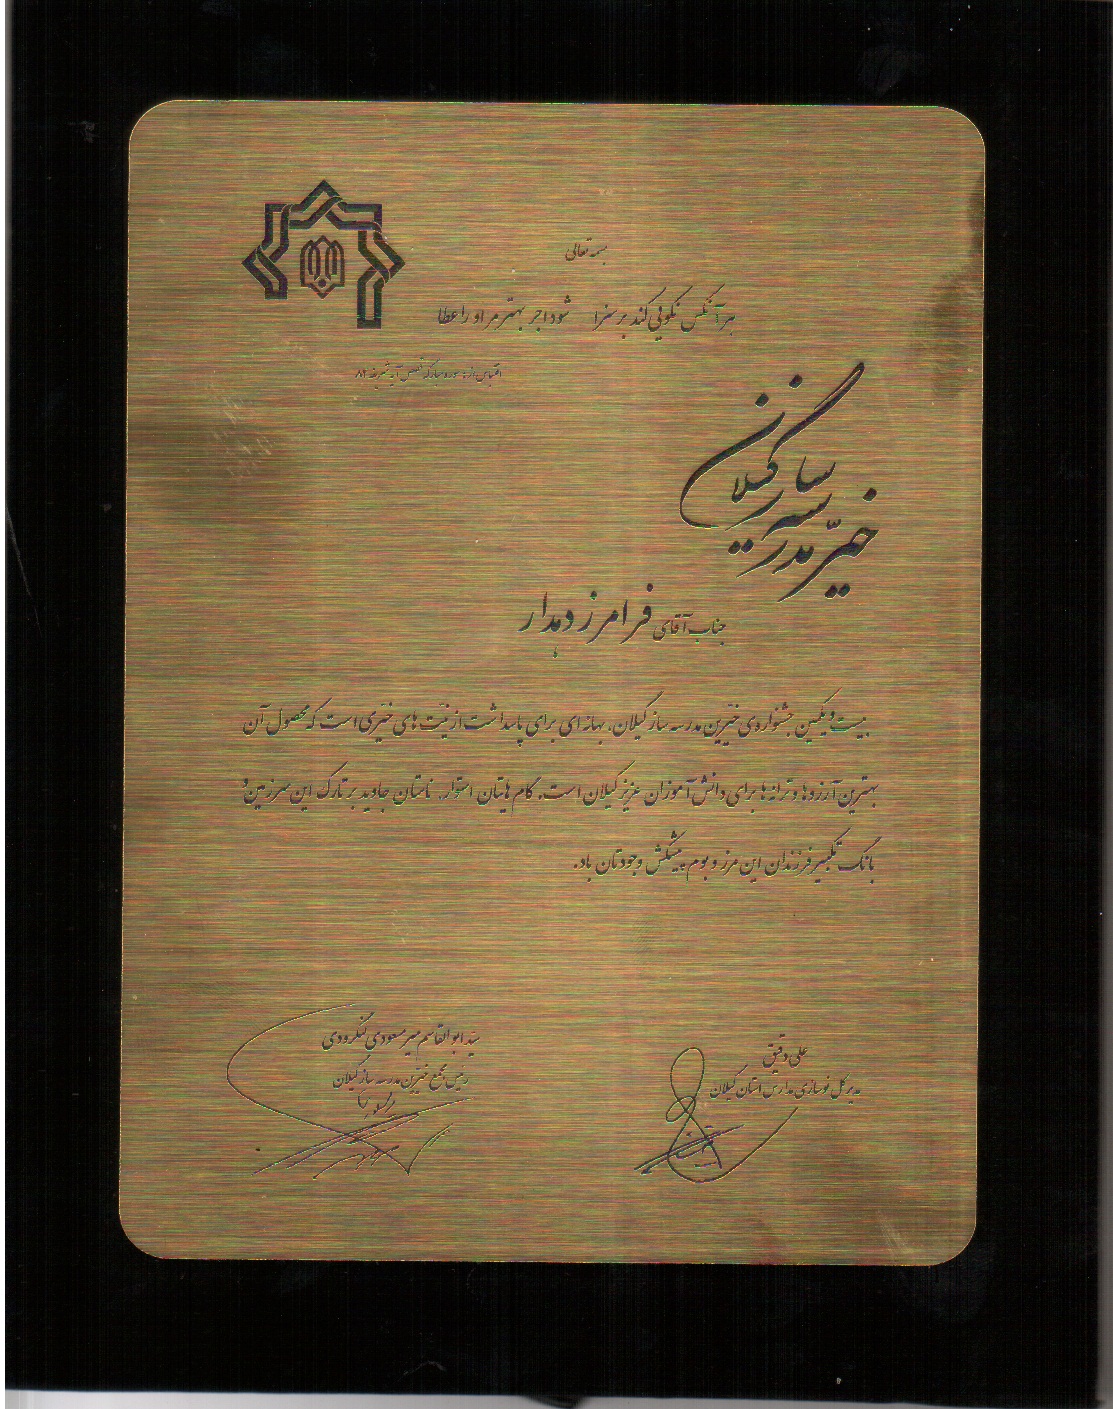 بسمه تعالی
هر آنکس نکویی کند بر سزا شود اجر بهتر مر او را عطا
اقتباس از: سوره مبارکه قصص آیه شریفه ۸۴
خیّر مدرسه ساز گیلان
جناب آقای فرامرز دمدار
بیست و یکمین جشنواره‌ی خیّرین مدرسه ساز گیلان، بهانه‌ای برای پاسداشت از نیّت های خیّری است که محصول آن
بهترین آرزوها و ترانه ها برای دانش آموزان عزیز گیلان است. گام هایتان استوار، نامتان جاوید بر تارک این سرزمین و
بانگ تکبیر فرزندان این مرز و بوم پیشکش وجودتان باد.
سیّد ابوالقاسم میر مسعودی لنگرودی
رئیس مجمع خیّرین مدرسه ساز گیلان
علی دقیق
مدیر کل نوسازی مدارس استان گیلان